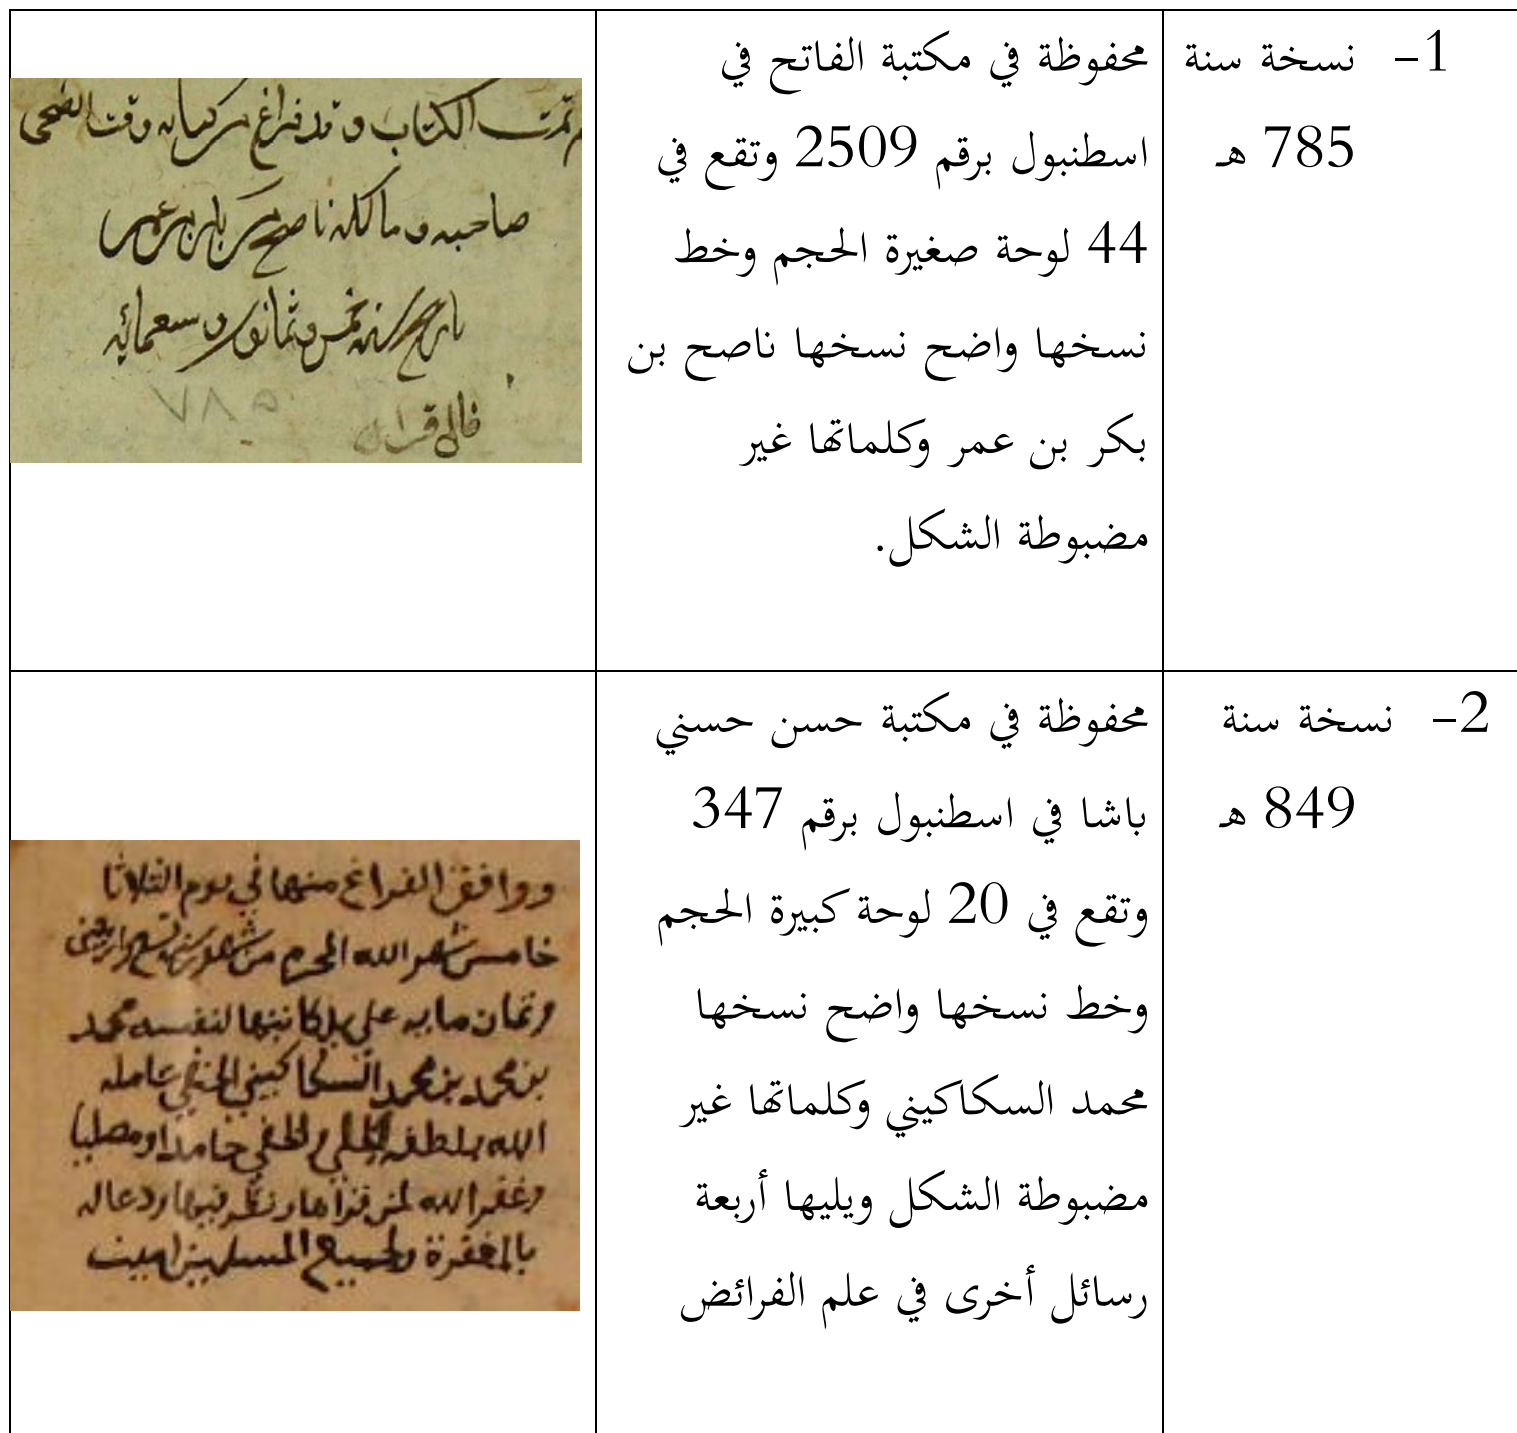 1- نسخة سنة
785 هـ
محفوظة في مكتبة الفاتح في
اسطنبول برقم 2509 وتقع في
44 لوحة صغيرة الحجم وخط
نسخها واضح نسخها ناصح بن
بكر بن عمر وكلماتها غير
مضبوطة الشكل.
تمت الكتاب وقد فراغ من كتابه وقت الضحى
صاحبه ومالكه ناصح بن بكر بن عمر
تاريخ سنه خمس وثمانون وسبعمائه
٧٨٥
2- نسخة سنة
849 هـ
محفوظة في مكتبة حسن حسني
باشا في اسطنبول برقم 347
وتقع في 20 لوحة كبيرة الحجم
وخط نسخها واضح نسخها
محمد السكاكيني وكلماتها غير
مضبوطة الشكل ويليها أربعة
رسائل أخرى في علم الفرائض
ووافق الفراغ منها في يوم الثلاثا
خامس شهر الله المحرم من شهور سنه تسع واربعين
وثمان مايه على يد كاتبها لنفسه محمد
بن محمد بن محمد السكاكيني الحنفي عامله
الله بلطفه الجلي والخفي حامدا ومصليا
وغفر الله لمن قراها ونظر فيها ودعا له
بالمغفرة ولجميع المسلمين امين